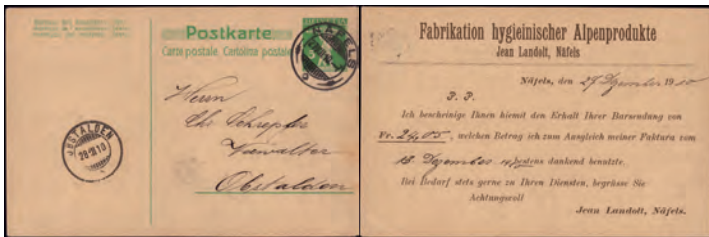 Postkarte
Carte postale. Cartolina postale
NÄFELS
Herrn
Chr Schrepfer
Verwalter
Obstalden
OBSTALDEN
28 XII 10
Fabrikation hygieinischer Alpenprodukte
Jean Landolt, Näfels
Näfels, den 27 Dezember 19
P. P.
Ich bescheinige Ihnen hiemit den Erhalt Ihrer Barsendung von
Fr. 24,05, welchen Betrag ich zum Ausgleich meiner Faktura vom
15. Dezember bestens dankend benutzte.
Bei Bedarf stets gerne zu Ihren Diensten, begrüsse Sie
Achtungsvoll
Jean Landolt, Näfels.